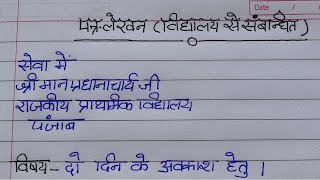 पत्र-लेखन (विद्यालय से संबन्धित)
सेवा में
श्री मान प्रधानाचार्य जी
राजकीय प्राथमिक विद्यालय
पंजाब
विषय- दो दिन के अवकाश हेतु।